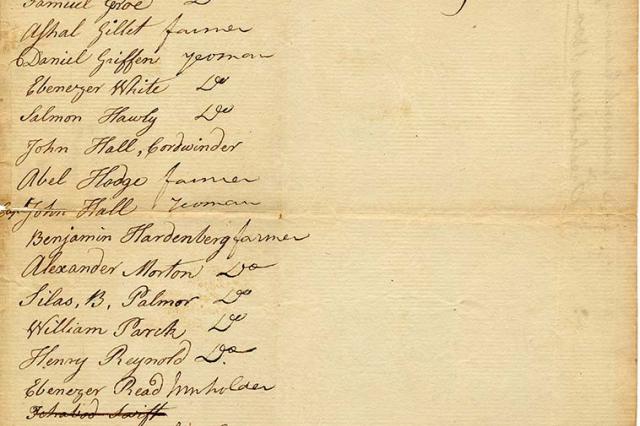 Samuel
Ashal Gillet farmer
Daniel Griffen yeoman
Ebenezer White Do
Salmon Hawly Do
John Hall, Cordwinder
Abel Hodge farmer
John Hall yeoman
Benjamin Hardenberg farmer
Alexander Morton Do
Silas, B, Palmor Do
William Parck Do
Henry Reynold Do
Ebenezer Read Innholder
Ichabod Swift